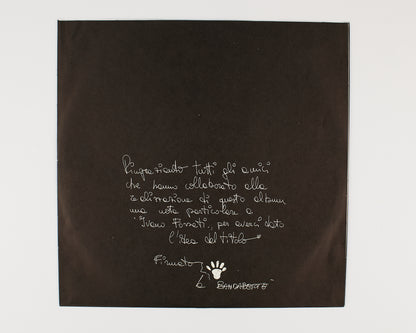 Ringraziando tutti gli amici
che hanno collaborato alla
realizzazione di questo album
una nota particolare a
"Ivano Fossati", per averci dato
l'idea del titolo
Firmato